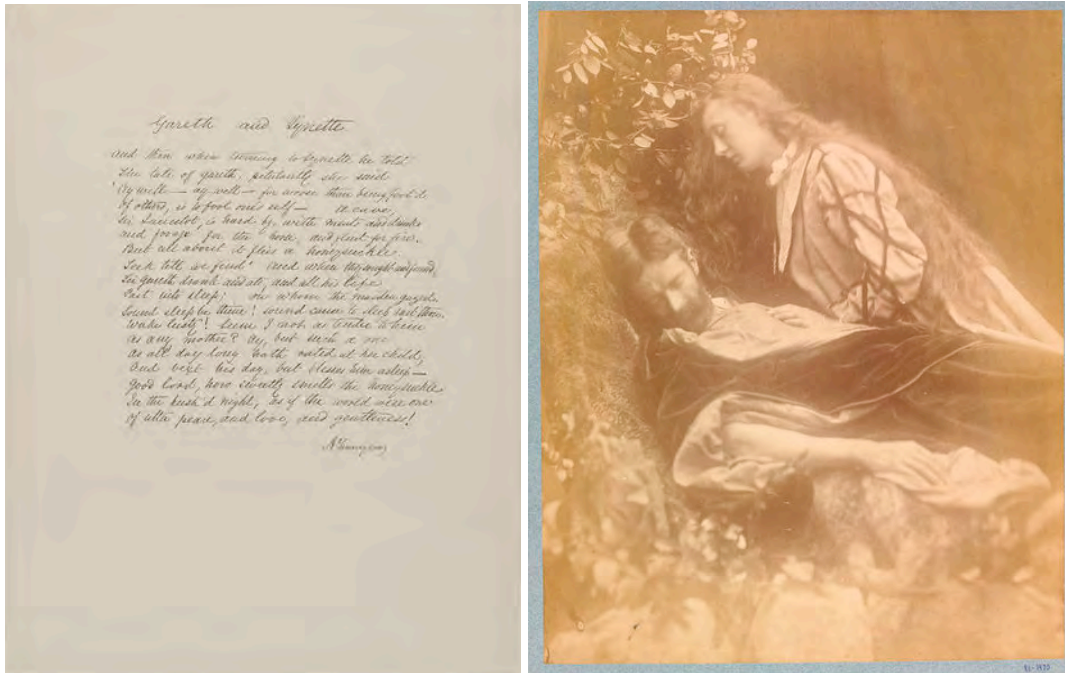 Gareth and Lynette
And then when turning to Lynette he told
The tale of Gareth, petulantly she said
"Ay well — ay well — for worse than being fool'd
Of others, is to fool one's self — A cave,
Sir Lancelot, is hard by, with meats and drinks
And forage for the horse, and flint for fire.
But all about it flies a honeysuckle.
Seek till we find" And when they sought and found,
Sir Gareth drank and ate, and all his life
Past into sleep; on whom the maiden gazed.
Sound sleep be thine! sound cause to sleep hast thou.
Wake lusty! Seem I not as tender to him
As any mother? Ay, but such a one
As all day long hath rated at her child,
And vext his day, but blesses him asleep —
Good Lord, how sweetly smells the honeysuckle
In the hush'd night, as if the world were one
Of utter peace, and love, and gentleness!
A Tennyson